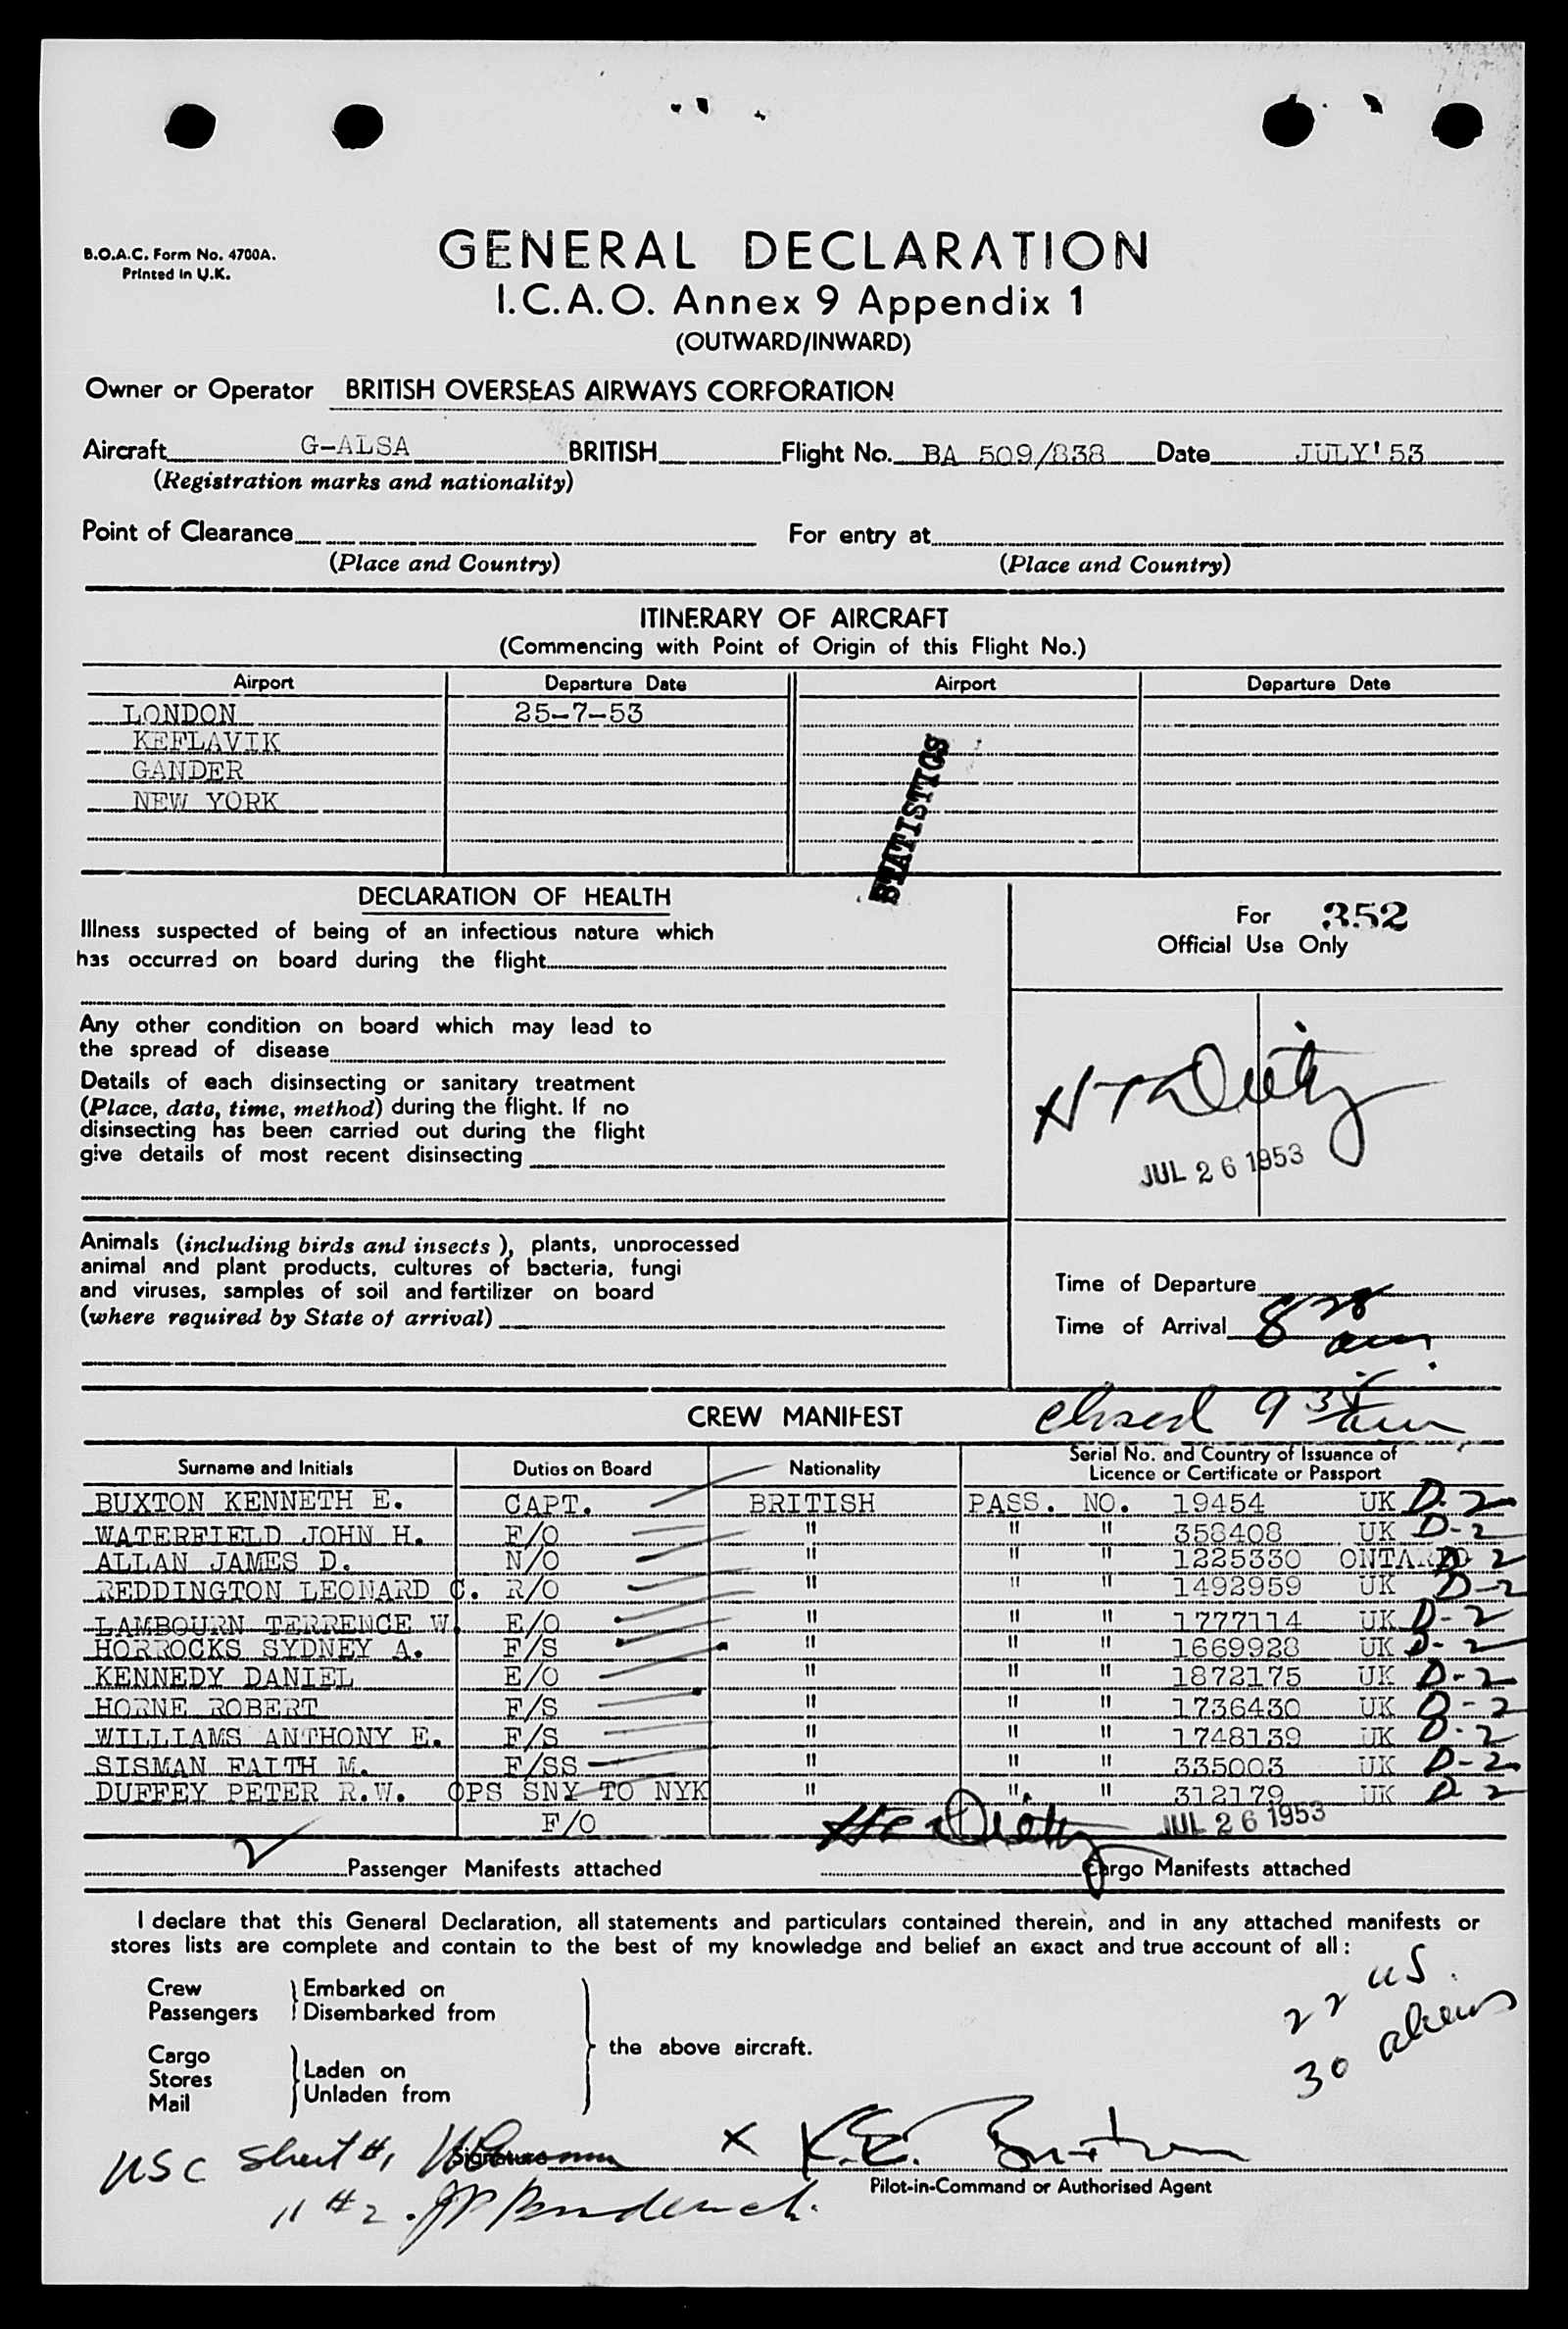 B.O.A.C. Form No. 4700A.
Printed in U.K.
GENERAL DECLARATION
I.C.A.O. Annex 9 Appendix 1
(OUTWARD/INWARD)
Owner or Operator BRITISH OVERSEAS AIRWAYS CORPORATION
Aircraft G-ALSA BRITISH Flight No. BA 509/838 Date JULY'53
(Registration marks and nationality)
Point of Clearance For entry at
(Place and Country) (Place and Country)
ITINERARY OF AIRCRAFT
(Commencing with Point of Origin of this Flight No.)
Airport Departure Date Airport Departure Date
LONDON 25-7-53
KEFLAVIK
GANDER
NEW YORK
STATISTICS
DECLARATION OF HEALTH
Illness suspected of being of an infectious nature which
has occurred on board during the flight
For 352
Official Use Only
Any other condition on board which may lead to
the spread of disease
Details of each disinsecting or sanitary treatment
(Place, date, time, method) during the flight. If no
disinsecting has been carried out during the flight
give details of most recent disinsecting
JUL 26 1953
Animals (including birds and insects), plants, unprocessed
animal and plant products, cultures of bacteria, fungi
and viruses, samples of soil and fertilizer on board
(where required by State of arrival)
Time of Departure
Time of Arrival 8 28 am
closed 9 35 am
CREW MANIFEST
Surname and Initials Duties on Board Nationality Serial No. and Country of Issuance of
Licence or Certificate or Passport
BUXTON KENNETH E. CAPT. BRITISH PASS. NO. 19454 UK D-2
WATERFIELD JOHN H. F/O " " " 358408 UK D-2
ALLAN JAMES D. N/O " " " 1225330 ONTARIO D 2
REDDINGTON LEONARD C. R/O " " " 1492959 UK D-2
LAMBOURN TERRENCE W. E/O " " " 1777114 UK D-2
HORROCKS SYDNEY A. F/S " " " 1669928 UK D-2
KENNEDY DANIEL E/O " " " 1872175 UK D-2
HORNE ROBERT F/S " " " 1736430 UK D-2
WILLIAMS ANTHONY E. F/S " " " 1748139 UK D-2
SISMAN FAITH M. F/SS " " " 335003 UK D-2
DUFFEY PETER R.W. OPS SNY TO NYK " " " 312179 UK D 2
F/O JUL 26 1953
2 Passenger Manifests attached Cargo Manifests attached
I declare that this General Declaration, all statements and particulars contained therein, and in any attached manifests or
stores lists are complete and contain to the best of my knowledge and belief an exact and true account of all:
Crew Embarked on
Passengers Disembarked from
the above aircraft.
Cargo
Stores Laden on
Mail Unladen from
22 US.
30 aliens
USC Sheet #1 Signature X K.E. Buxton
Pilot-in-Command or Authorised Agent
" #2